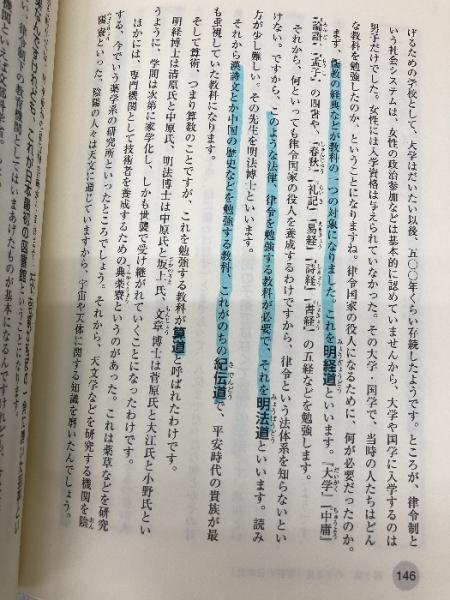 げるための学校として、大学はだいたい以後、五〇〇年くらい存続したようです。ところが、律令制と
いう社会システムは、女性の政治参加などは基本的に認めていませんから、大学や国学に入学するのは
男子だけでした。女性には入学資格は与えられていなかった。その大学、国学で、当時の人たちはどん
な教科を勉強したのか、ということになりますね。律令国家の役人になるために、何が必要だったのか。
まず、儒教の経典などが教科の一つの対象になりました。これを明経道といいます。『大学』『中庸』
『論語』『孟子』の四書や、『春秋』『礼記』『易経』『詩経』『書経』の五経などを勉強します。
それから、何といっても律令国家の役人を養成するわけですから、律令という法体系を知らないとい
けない。ですから、このような法律、律令を勉強する教科が必要で、それを明法道といいます。読み
方が少し難しい。その先生を明法博士といいます。
それから漢詩文とか中国の歴史などを勉強する教科、これがのちの紀伝道で、平安時代の貴族が最
も重視していた教科になります。
そして算術、つまり算数のことですが、これを勉強する教科が算道と呼ばれたわけです。
明経博士は清原氏と中原氏、明法博士は中原氏と坂上氏、文章博士は菅原氏と大江氏と小野氏とい
うように、学問は次第に家学化し、しかも世襲で受け継がれていくことになったわけです。
ほかには、専門機関として技術者を養成するための典薬寮というのがあった。これは薬草などを研究
する、今でいう薬学系の研究所といったところでしょう。それから、天文学などを研究する機関を陰
陽寮といった。陰陽の人々は天文に通じていますから、宇宙や天体に関する知識を磨いたんでしょう。
146